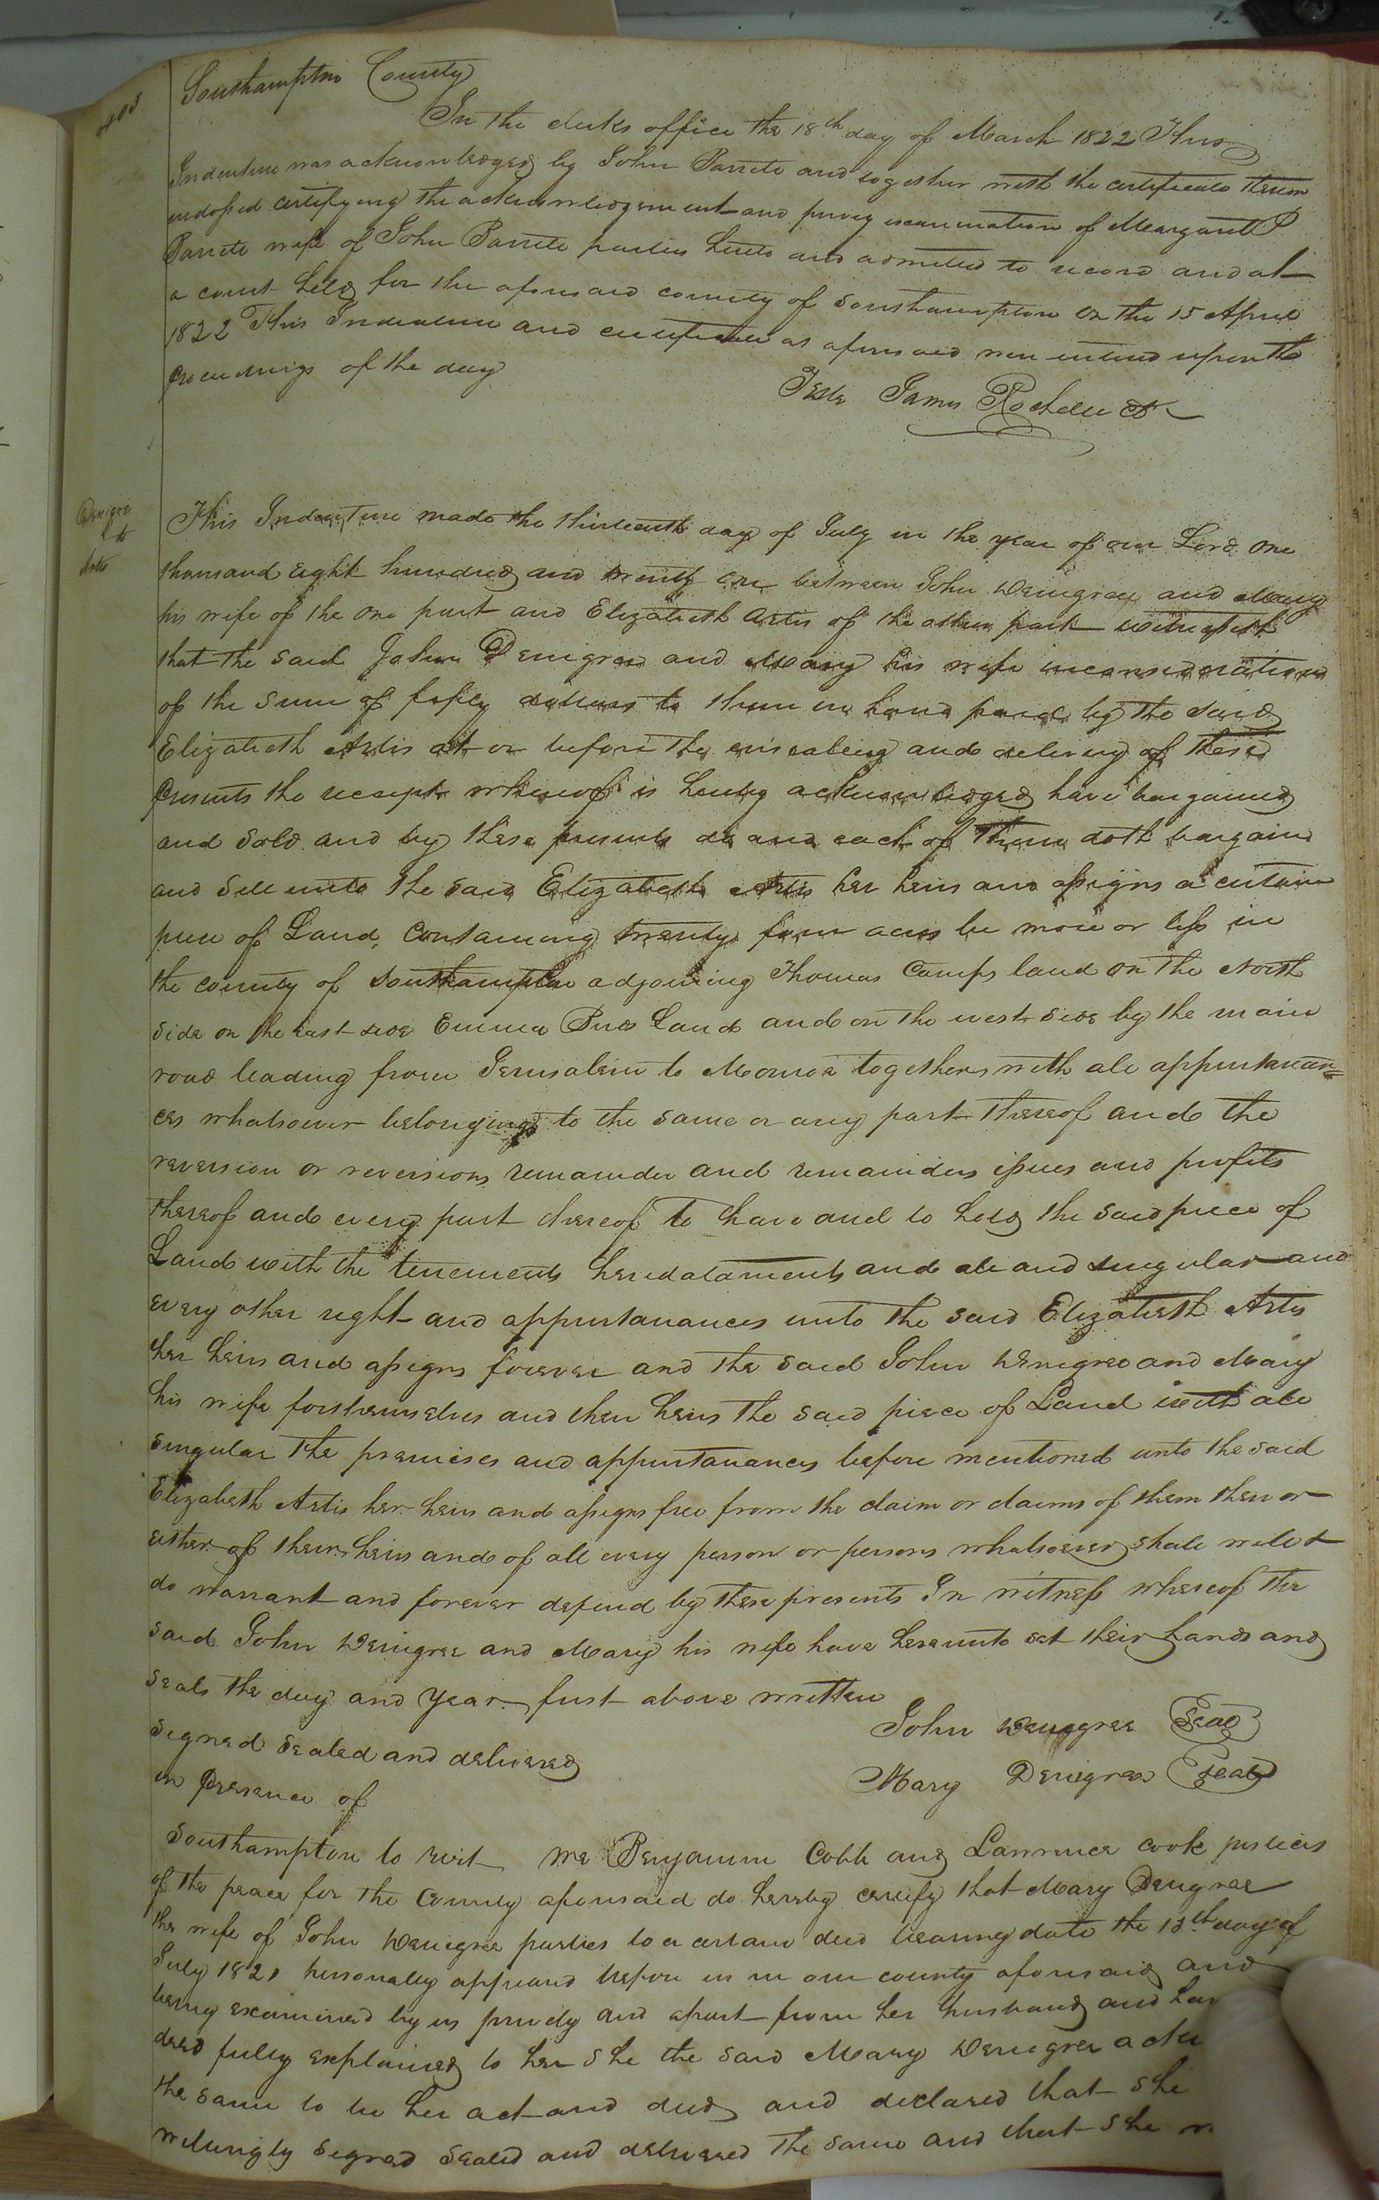 403
Southampton County
In the clerks office the 18th day of March 1822 This
Indenture was acknowledged by John Barrett and together with the certificate thereon
endossed certifying the acknowledgement and privy examination of Margarett P
Barrett wife of John Barrett parties hereto and admitted to record and at
a court held for the aforesaid county of Southampton on the 15 April
1822 This Indenture and certificate as aforesaid were entered upon the
proceedings of the day
Teste James Rochelle Ck
Denegre
to
Artis
This Indenture made the thirteenth day of July in the year of our Lord one
thousand eight hundred and twenty one between John Denegree and Mary
his wife of the one part and Elizabeth Artis of the other part Witnesseth
that the said John Denegree and Mary his wife in consideration
of the sum of fifty dollars to them in hand paid by the said
Elizabeth Artis at or before the ensealing and delivery of these
presents the receipt whereof is hereby acknowledged have bargained
and sold and by these presents do and each of them doth bargain
and sell unto the said Elizabeth Artis her heirs and assigns a certain
piece of Land, containing twenty four acres be more or less in
the county of Southampton adjoining Thomas Camps land on the North
side on the east side Land and on the west side by the main
road leading from Jerusalem to Monroe together with all appurtenan=
ces whatsoever belonging to the same or any part thereof and the
reversion or reversions remainder and remainders issues and profits
thereof and every part thereof To have and to hold the said piece of
Land with the tenements heredataments and all and singular and
every other right and appurtanances unto the said Elizabeth Artis
her heirs and assigns forever and the said John Denegree and Mary
his wife for themselves and their heirs the said piece of Land with all
singular the premises and appurtanances before mentioned unto the said
Elizabeth Artis her heirs and assigns free from the claim or claims of them their or
either of their heirs and of all every person or persons whatsoever shall will &
do warrant and forever defend by these presents In witness whereof the
said John Denegree and Mary his wife have hereunto set their hands and
seals the day and year first above written
John Denegree Seal
Signed Sealed and delivered
Mary Denegree Seal
in Presence of
Southampton to wit We Benjamin Cobb and Lawrence Cook justices
of the peace for the County aforesaid do hereby certify that Mary Denegree
the wife of John Denegree parties to a certain deed bearing date the 13th day of
July 1821 personally appeard before us in our county aforesaid and
being examined by us privily and apart from her husband and
deed fully explained to her she the said Mary Denegree
the same to be her act and deed and declared that she
willingly signed sealed and delivered the same and that she